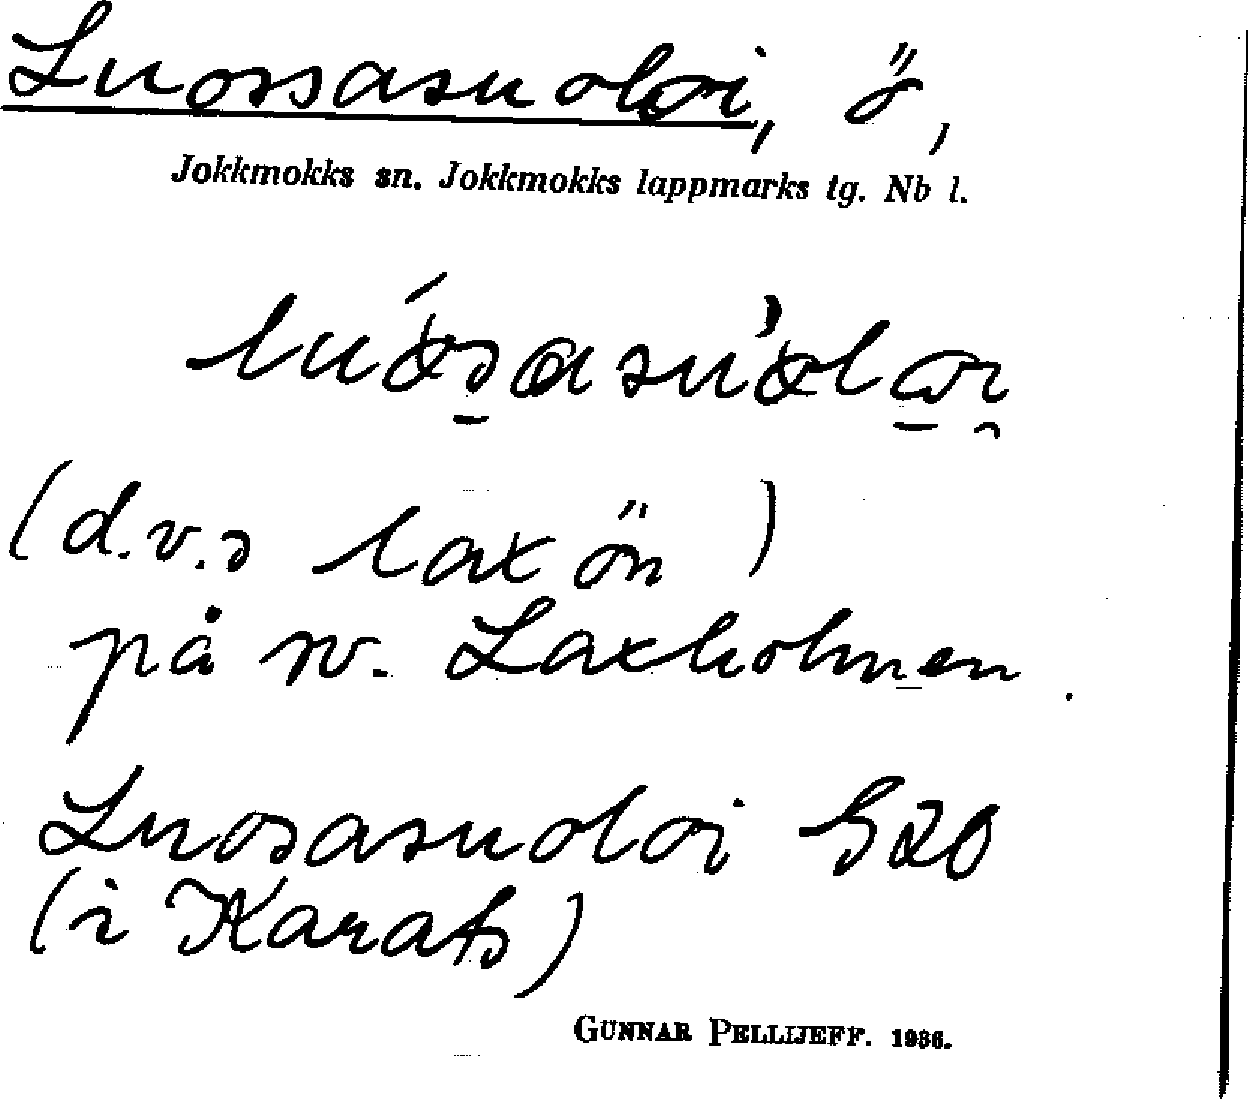 Luossasuoloi, ö,
Jokkmokks sn. Jokkmokks lappmarks tg. Nb l.
(d.v.s laxön)
på sv. Laxholmen.
Luosasuoloi G20
(i Karats)
GUNNAR PELLIJEFF. 1936.